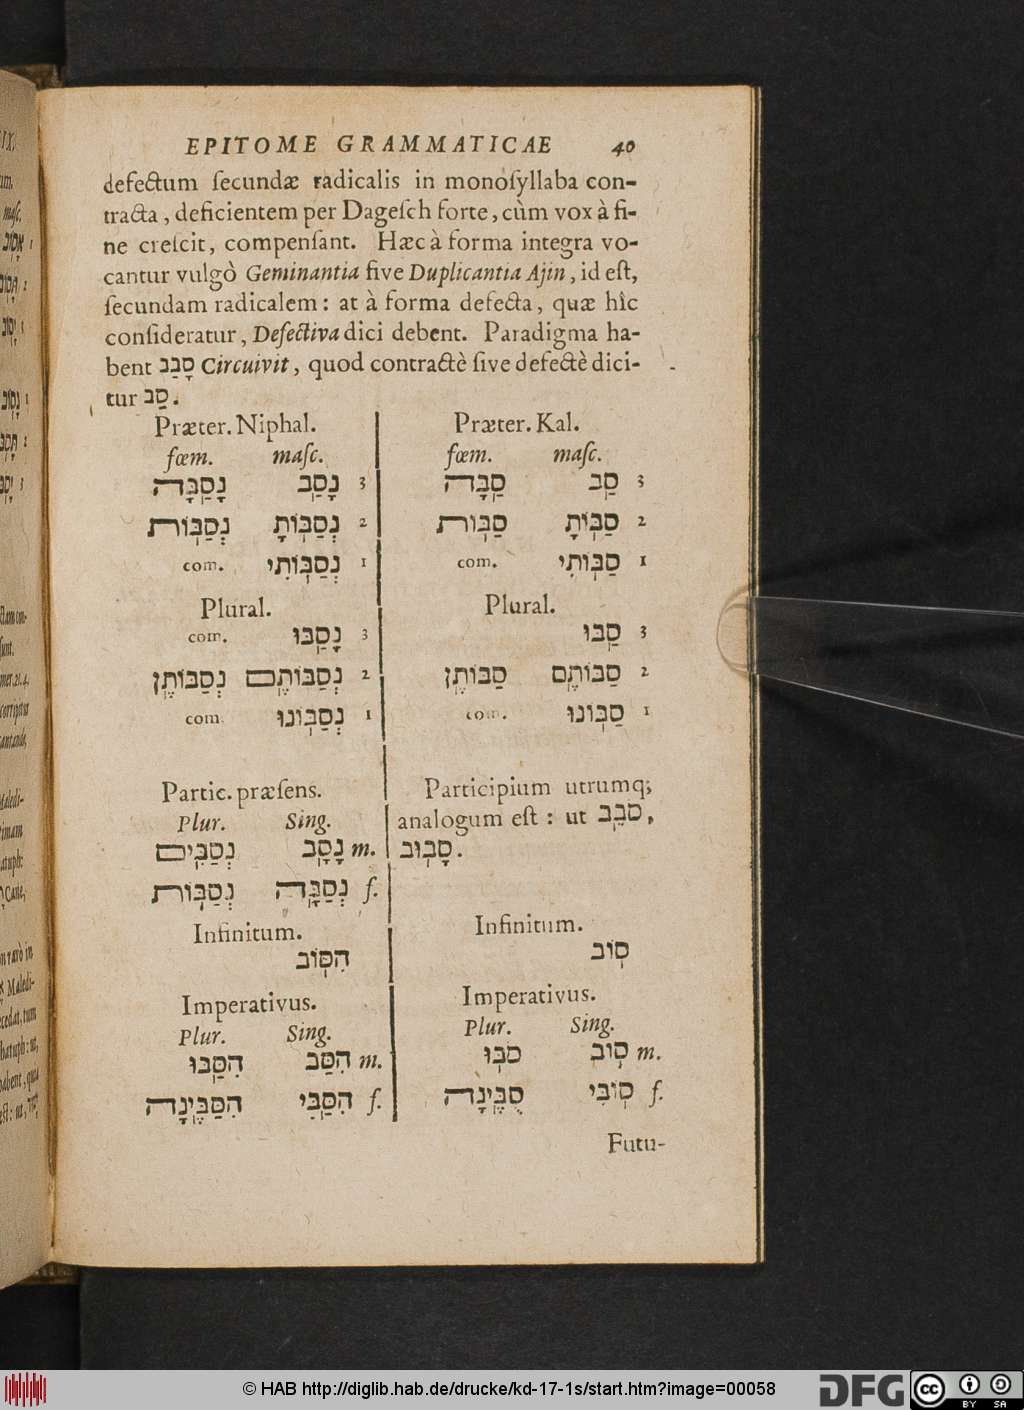 EPITOME GRAMMATICAE 40
defectum ſecundæ radicalis in monoſyllaba con-
tracta, deficientem per Dageſch forte, cùm vox à fi-
ne creſcit, compenſant. Hæc à forma integra vo-
cantur vulgò Geminantia ſive Duplicantia Ajin, id eſt,
ſecundam radicalem: at à forma defecta, quæ hîc
conſideratur, Defectiva dici debent. Paradigma ha-
bent סָבַב Circuivit, quod contractè ſive defectè dici-
tur סַב.
Præter. Niphal. Præter. Kal.
fœm. maſc. fœm. maſc.
נָסַבָּה נָסַב 3 סַבָּה סַב 3
נְסַבּוֹת נְסַבּוֹתָ 2 סַבּוֹת סַבּוֹתָ 2
com. נְסַבּוֹתִי 1 com. סַבּוֹתִי 1
Plural. Plural.
com. נָסַבּוּ 3 סַבּוּ 3
נְסַבּוֹתֶן נְסַבּוֹתֶם 2 סַבּוֹתֶן סַבּוֹתֶם 2
com נְסַבּוֹנוּ 1 com. סַבּוֹנוּ 1
Partic. præſens. Participium utrumq;
Plur. Sing. analogum eſt: ut סֹבֵב,
נְסַבִּים נָסָב m. סָבוּב.
נְסַבּוֹת נְסַבָּה f.
Infinitum. Infinitum.
הִסּוֹב סוֹב
Imperativus. Imperativus.
Plur. Sing. Plur. Sing.
הִסַּבּוּ הִסַּב m. סֹבּוּ סוֹב m.
הִסַּבֶּינָה הִסַּבִּי f. סֻבֶּינָה סוֹבִּי f.
Futu-
© HAB http://diglib.hab.de/drucke/kd-17-1s/start.htm?image=00058
DFG
cc BY SA